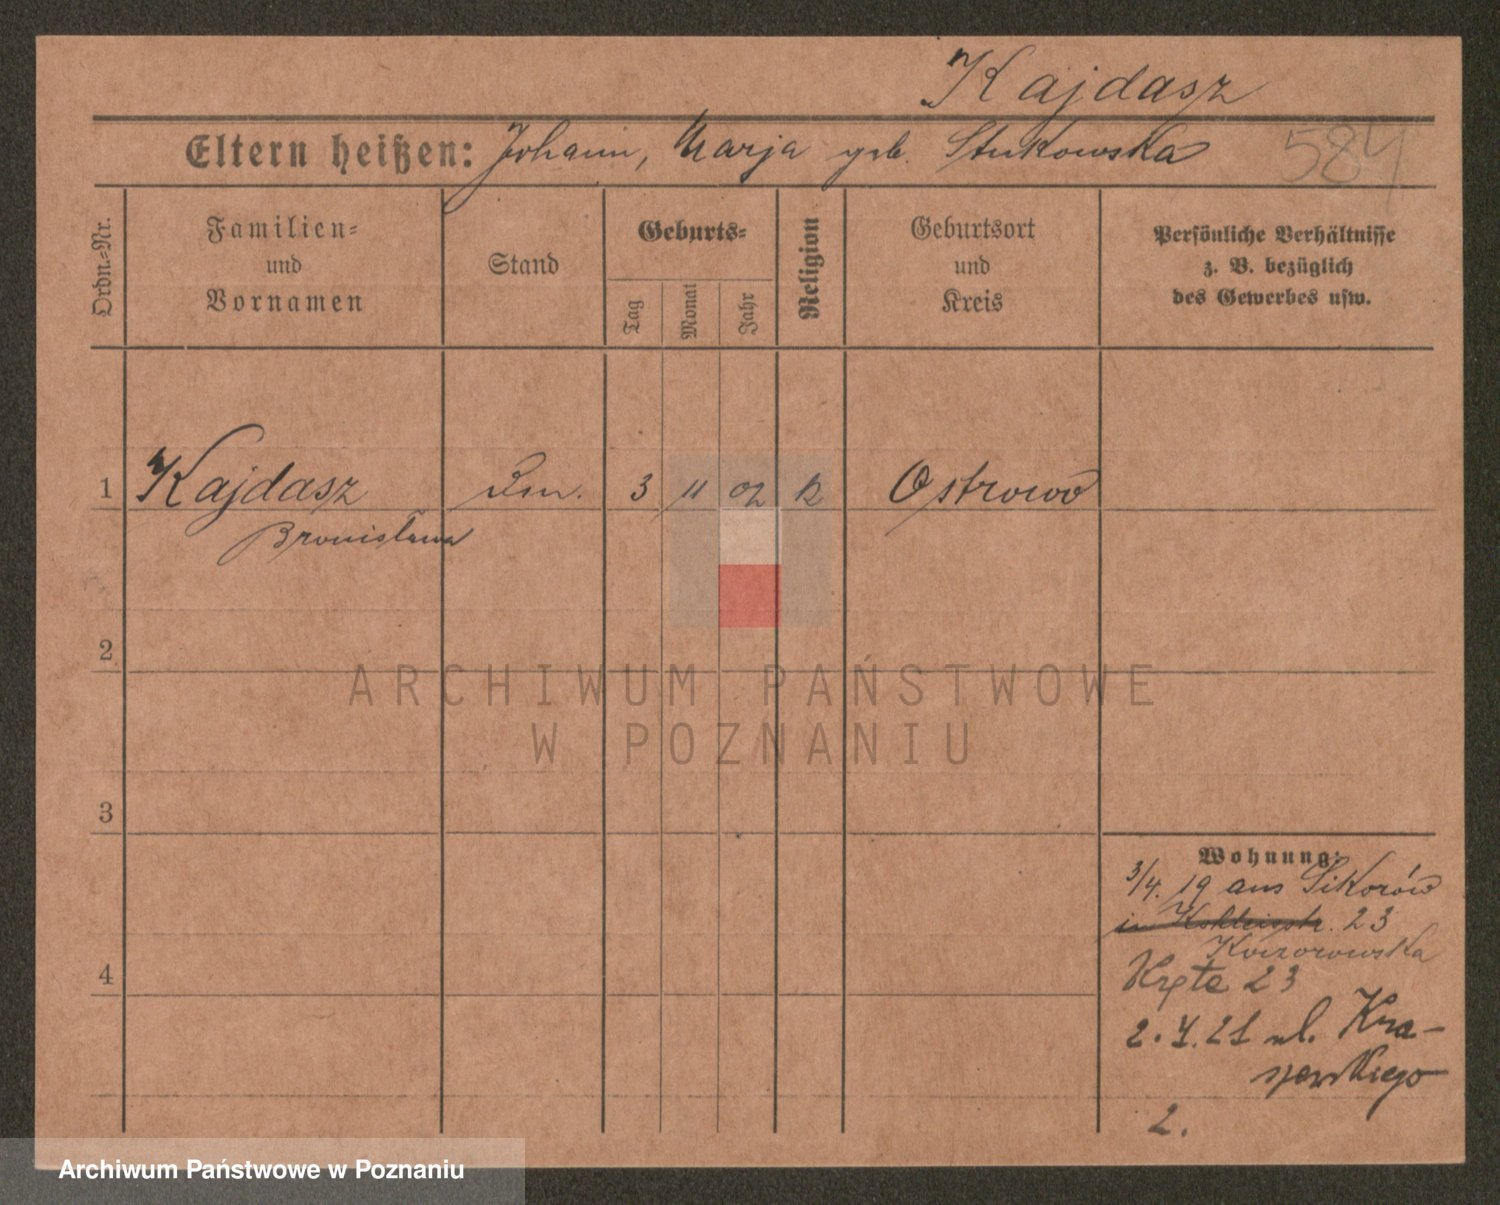 Kajdasz
Eltern heißen: Johann, Marja geb. Stukowska
584
Ordn.-Nr.
Familien-
und
Vornamen
Stand
Geburts-
Tag
Monat
Jahr
Religion
Geburtsort
und
Kreis
Persönliche Verhältnisse
z. B. bezüglich
des Gewerbes usw.
1 Kajdasz 3 11 02 k Ostrowo
Bronisława
2
3
4
Wohnung:
3/4. 19 aus Sikorów
in 23
Kręta 23
2. 21 ul. Kra-
szewskiego
2.
ARCHIWUM PAŃSTWOWE
W POZNANIU
Archiwum Państwowe w Poznaniu